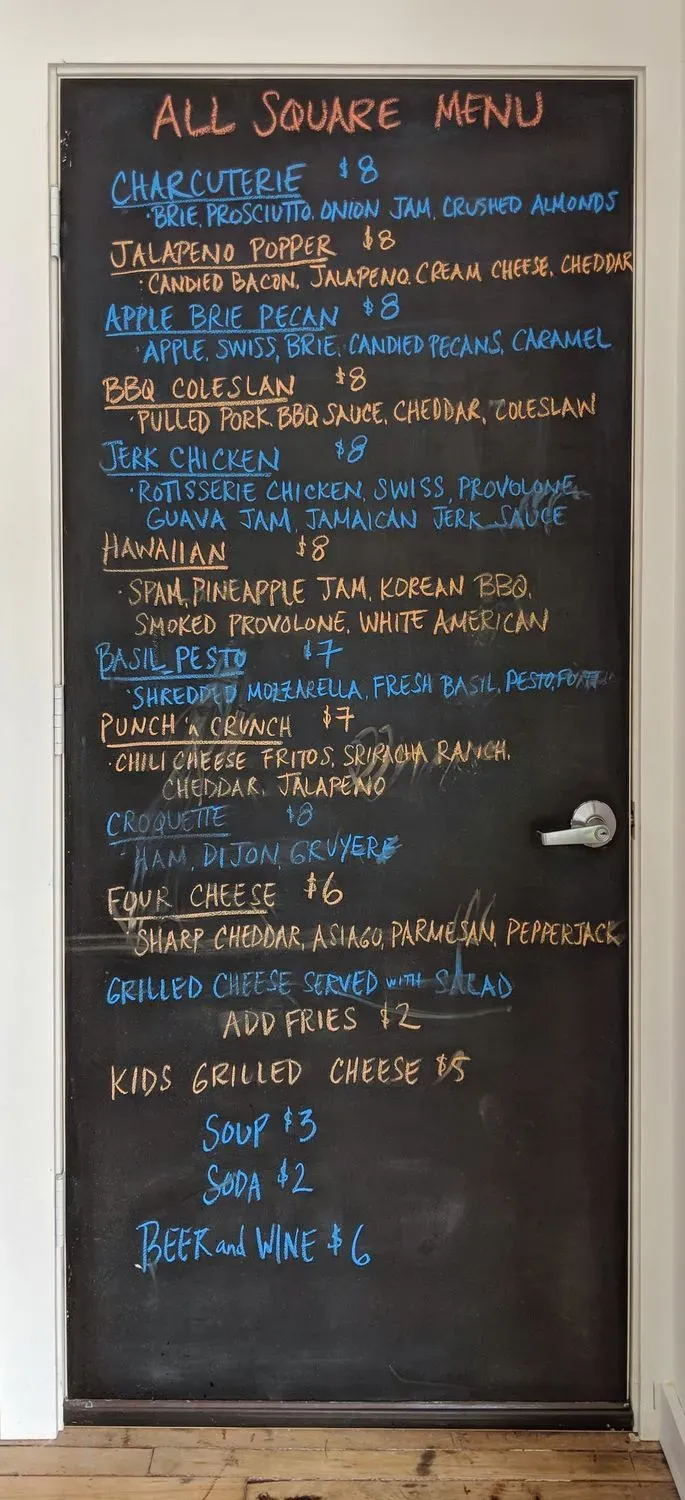 ALL SQUARE MENU
CHARCUTERIE $8
·BRIE, PROSCIUTTO, ONION JAM, CRUSHED ALMONDS
JALAPENO POPPER $8
·CANDIED BACON, JALAPENO, CREAM CHEESE, CHEDDAR
APPLE BRIE PECAN $8
·APPLE, SWISS, BRIE, CANDIED PECANS, CARAMEL
BBQ COLESLAN $8
·PULLED PORK, BBQ SAUCE, CHEDDAR, COLESLAW
JERK CHICKEN $8
·ROTISSERIE CHICKEN, SWISS, PROVOLONE,
GUAVA JAM, JAMAICAN JERK SAUCE
HAWAIIAN $8
·SPAM, PINEAPPLE JAM, KOREAN BBQ,
SMOKED PROVOLONE, WHITE AMERICAN
BASIL PESTO $7
·SHREDDED MOZZARELLA, FRESH BASIL, PESTO,
PUNCH 'n CRUNCH $7
·CHILI CHEESE FRITOS, SRIRACHA RANCH,
CHEDDAR, JALAPENO
CROQUETTE $8
·HAM, DIJON, GRUYERE
FOUR CHEESE $6
·SHARP CHEDDAR, ASIAGO, PARMESAN, PEPPERJACK
GRILLED CHEESE SERVED WITH SALAD
ADD FRIES $2
KIDS GRILLED CHEESE $5
SOUP $3
SODA $2
BEER and WINE $6